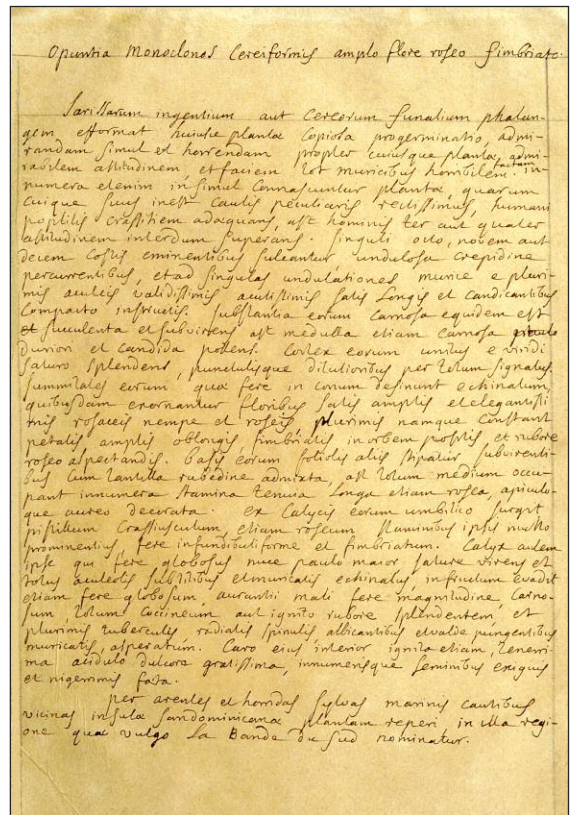 Opuntia Monoclonos Cereiformis amplo flore roseo fimbriato.
Sarissarum ingentium aut Cereorum funalium phalan-
gem efformat huiusce plantæ Copiosa progerminatio, admi-
randam simul et horrendam propter cuiusque plantæ admi-
rabilem altitudinem, et faciem tot muricibus horribilem factam. in-
numera etenim in simul Connascuntur plantæ, quarum
cuique suus inest Caulis peculiaris rectissimus, humani
poplitis Crassitiem adæquans, ast hominis ter aut quater
altitudinem interdum superans. singuli octo, novem aut
decem Costis eminentibus sulcantur undulosa crepidine
percurrentibus, et ad singulas undulationes murice e pluri-
mis aculeis validissimis, acutissimis satis longis et candicantibus
Compacto instructis. substantia eorum Carnosa equidem est
et succulenta et subvirens ast medulla etiam Carnosa
durior et candida potens. Cortex eorum unitus e viridi
saturo splendens, punctulisque dilutioribus per totum signatus.
summitates eorum, quæ fere in conum desinunt echinatum,
quibusdam exornantur floribus satis amplis et elegantissi
mis rosaceis nempe et roseis, plurimis namque Constant
petalis amplis oblongis fimbriatis in orbem positis et rubore
roseo aspectandis. basis eorum foliolis aliis stipatur subvirenti-
bus Cum tantilla rubedine admixta, ast totum medium occu-
pant innumera stamina tenuia longa etiam rosea, apiculo-
que aureo decorata. Ex Calycis eorum umbilico surgit
pistillum Crassiusculum, etiam roseum staminibus ipsis multo
prominentius, fere infundibuliforme et fimbriatum. Calyx autem
ipse qui fere globosus nuce paulo maior, sature virens et
totus aculeolis subtilibus et muricatis echinatus, in fructum evadit
etiam fere globosum, aurantii mali fere magnitudine Carno-
sum, totum Coccineum aut ignito rubore splendentem, et
plurimis tuberculis, radiatis spinulis albicantibus et valde pungentibus
muricatis, asperatum. Caro eius interior ignita etiam, tenerri-
ma acidulo dulcore gratissima, innumerisque seminibus exiguis
et nigerrimis fœta.
per arentes et horridas sylvas marinis cautibus
vicinas insulæ sandominicanæ plantam reperi in illa regi-
one quæ vulgo La Bande du sud nominatur.